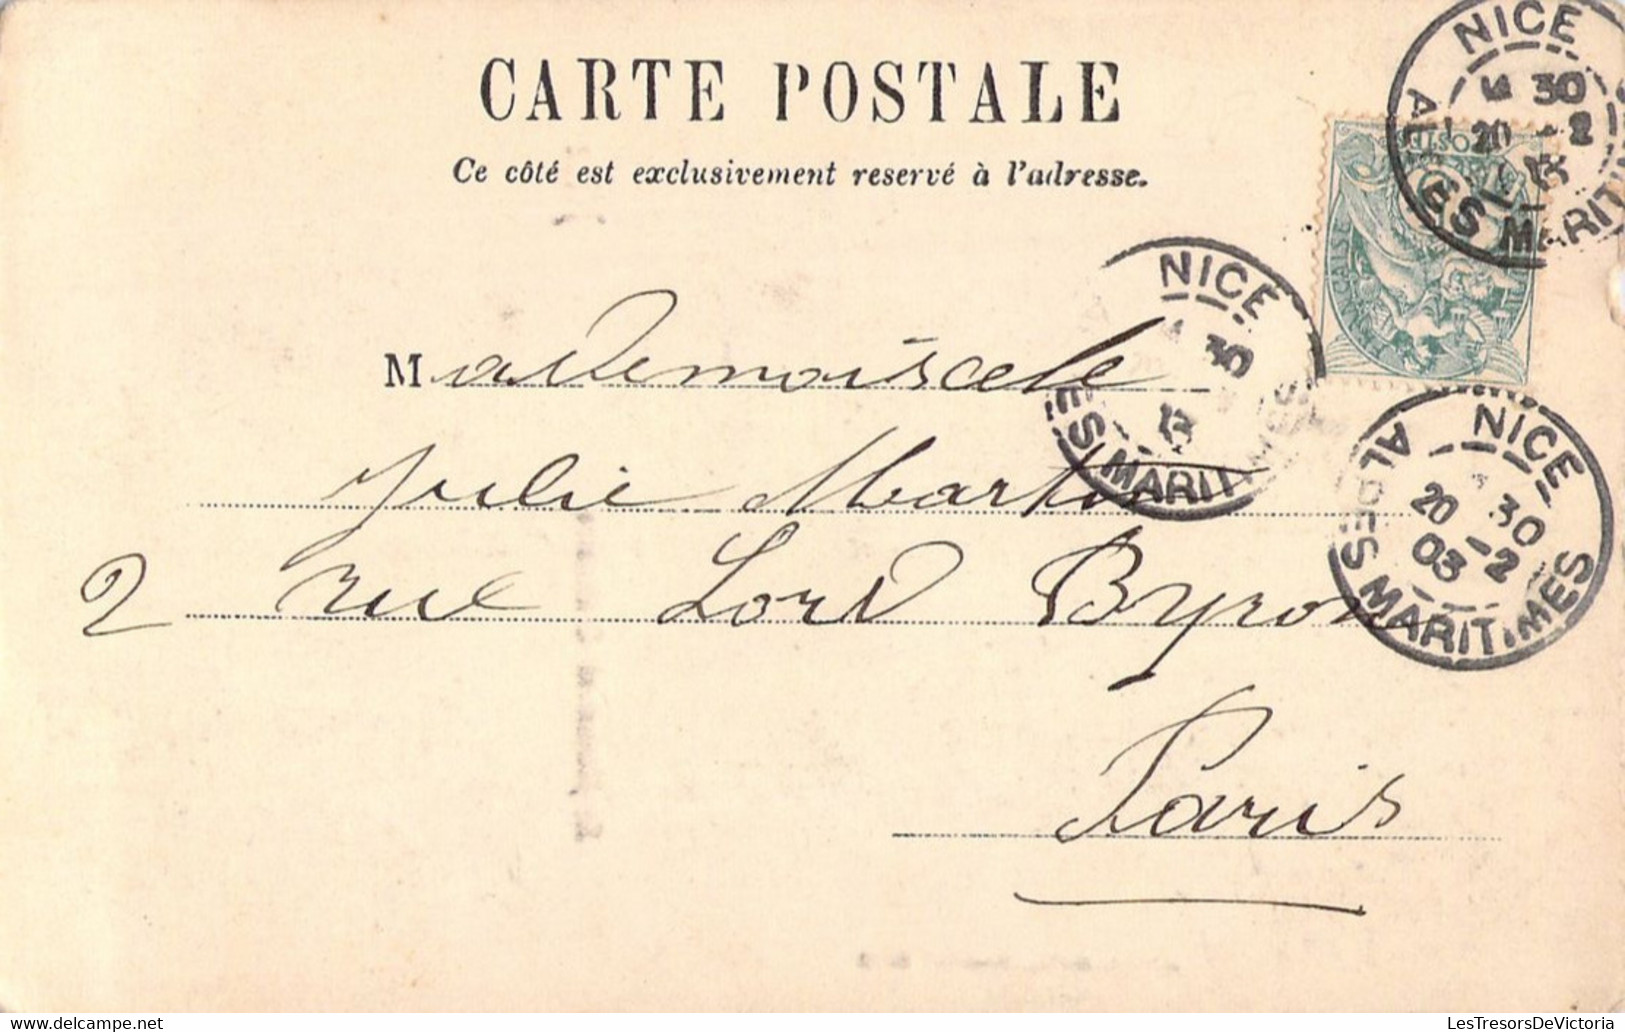 CARTE POSTALE
Ce côté est exclusivement reservé à l'adresse.
Mademoiselle
Julie Martin
2 rue Lord Byron
Paris
NICE
30
20 -2
ALPES MARIT
NICE
30
ES MARIT
NICE
30
20 -2
03
ALPES MARITIMES
LesTresorsDeVictoria